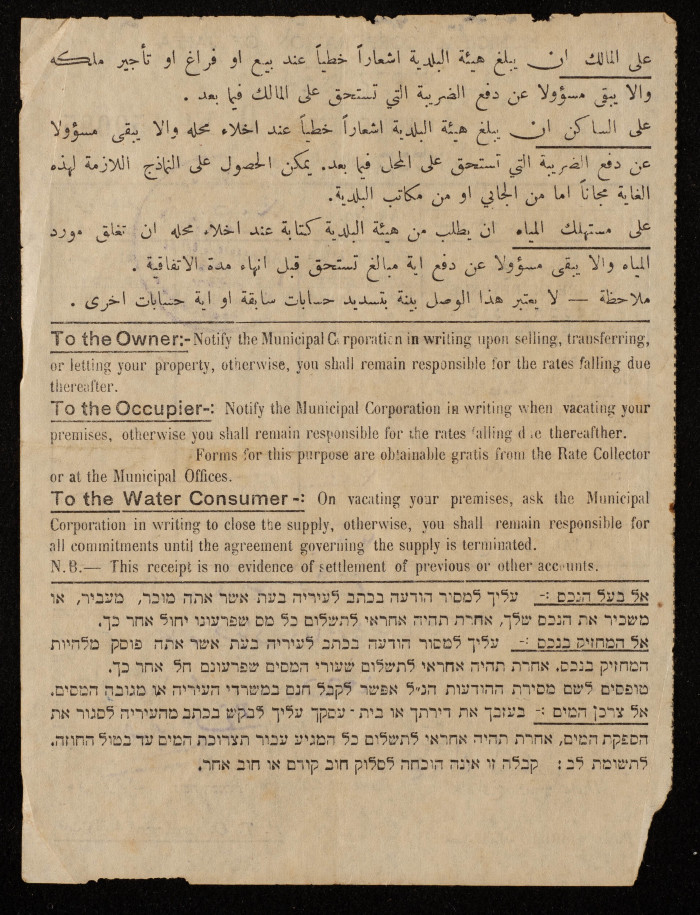 على المالك ان يبلغ هيئة البلدية اشعاراً خطياً عند بيع او فراغ او تأجير ملكه
والا يبقى مسؤولا عن دفع الضريبة التي تستحق على المالك فيما بعد .
على الساكن ان يبلغ هيئة البلدية اشعاراً خطياً عند اخلاء محله والا يبقى مسؤولا
عن دفع الضريبة التي تستحق على المحل فيما بعد. يمكن الحصول على النماذج اللازمة لهذه
الغاية مجاناً اما من الجابي او من مكاتب البلدية.
على مستهلك المياه ان يطلب من هيئة البلدية كتابة عند اخلاء محله ان تغلق مورد
المياه والا يبقى مسؤولا عن دفع اية مبالغ تستحق قبل انهاء مدة الاتفاقية .
ملاحظة — لا يعتبر هذا الوصل بينة بتسديد حسابات سابقة او اية حسابات اخرى .
To the Owner:- Notify the Municipal Corporation in writing upon selling, transferring,
or letting your property, otherwise, you shall remain responsible for the rates falling due
thereafter.
To the Occupier-: Notify the Municipal Corporation in writing when vacating your
premises, otherwise you shall remain responsible for the rates falling due thereafther.
Forms for this purpose are obtainable gratis from the Rate Collector
or at the Municipal Offices.
To the Water Consumer-: On vacating your premises, ask the Municipal
Corporation in writing to close the supply, otherwise, you shall remain responsible for
all commitments until the agreement governing the supply is terminated.
N.B.— This receipt is no evidence of settlement of previous or other accounts.
אל בעל הנכס :- עליך למסור הודעה בכתב לעיריה בעת אשר אתה מוכר, מעביר, או
משכיר את הנכס שלך, אחרת תהיה אחראי לתשלום כל מס שפרעונו יחול אחר כך.
אל המחזיק בנכס :- עליך למסור הודעה בכתב לעיריה בעת אשר אתה פוסק מלהיות
המחזיק בנכס. אחרת תהיה אחראי לתשלום שעורי המסים שפרעונם חל אחר כך.
טופסים לשם מסירת ההודעות הנ״ל אפשר לקבל חנם במשרדי העיריה או מגובה המסים.
אל צרכן המים :- בעזבך את דירתך או בית-עסקך עליך לבקש בכתב מהעיריה לסגור את
הספקת המים, אחרת תהיה אחראי לתשלום כל המגיע עבור תצרוכת המים עד בטול החוזה.
לתשומת לב : קבלה זו אינה הוכחה לסלוק חוב קודם או חוב אחר.